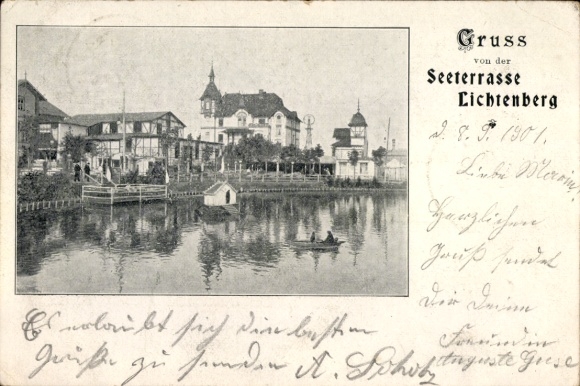 Gruss
von der
Seeterrasse
Lichtenberg
d. 8. 9. 1901.
Liebe
Herzlichen
Gruß sendet
Dir Deine
Freundin
Auguste Giese
Es erlaubt sich die besten
Grüße zu senden A.